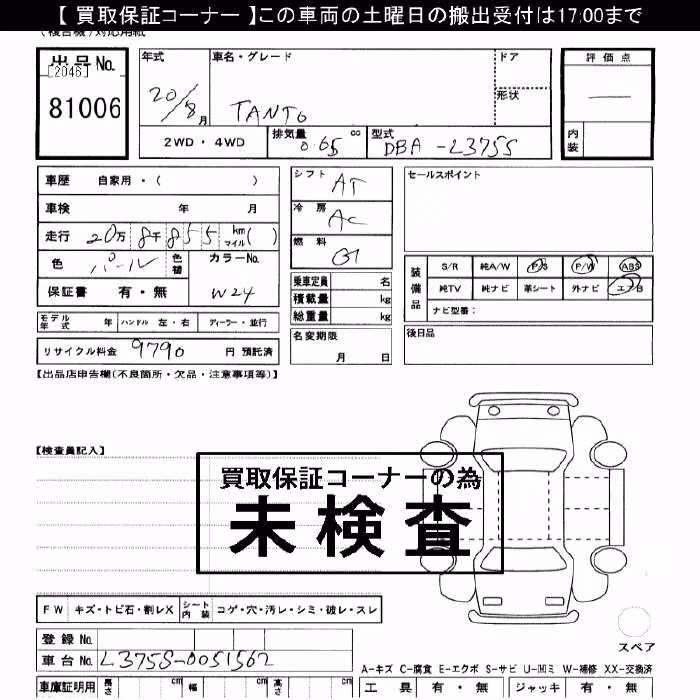 【 買取保証コーナー 】この車両の土曜日の搬出受付は17:00まで
(複合機)対応用紙
出品No.
[2046]
81006
年式
20/8月
車名・グレード
TANTO
ドア
形状
2WD・4WD
排気量 0.65 cc
型式 DBA-L375S
評価点
内装
車歴 自家用・( )
車検 年 月
走行 20万 8千 855 km マイル( )
色 パール 色替
カラーNo. W24
保証書 有・無
シフト AT
冷房 AC
燃料 G
乗車定員 名
積載量 kg
総重量 kg
名変期限 月 日
セールスポイント
装備品
S/R 純A/W P/S P/W ABS
純TV 純ナビ 革シート 外ナビ エアB
ナビ型番:
後日品
モデル年式 年 ハンドル 左・右 ディーラー・並行
リサイクル料金 9790 円 預託済
【出品店申告欄(不良箇所・欠品・注意事項等)】
【検査員記入】
買取保証コーナーの為
未検査
FW キズ・トビ石・割レX シート内装 コゲ・穴・汚レ・シミ・破レ・スレ
スペア
登録No.
車台No. L375S-0051562
A-キズ C-腐食 E-エクボ S-サビ U-凹ミ W-補修 XX-交換済
車庫証明用 長さ cm 幅 cm 高さ cm
工具 有・無 ジャッキ 有・無